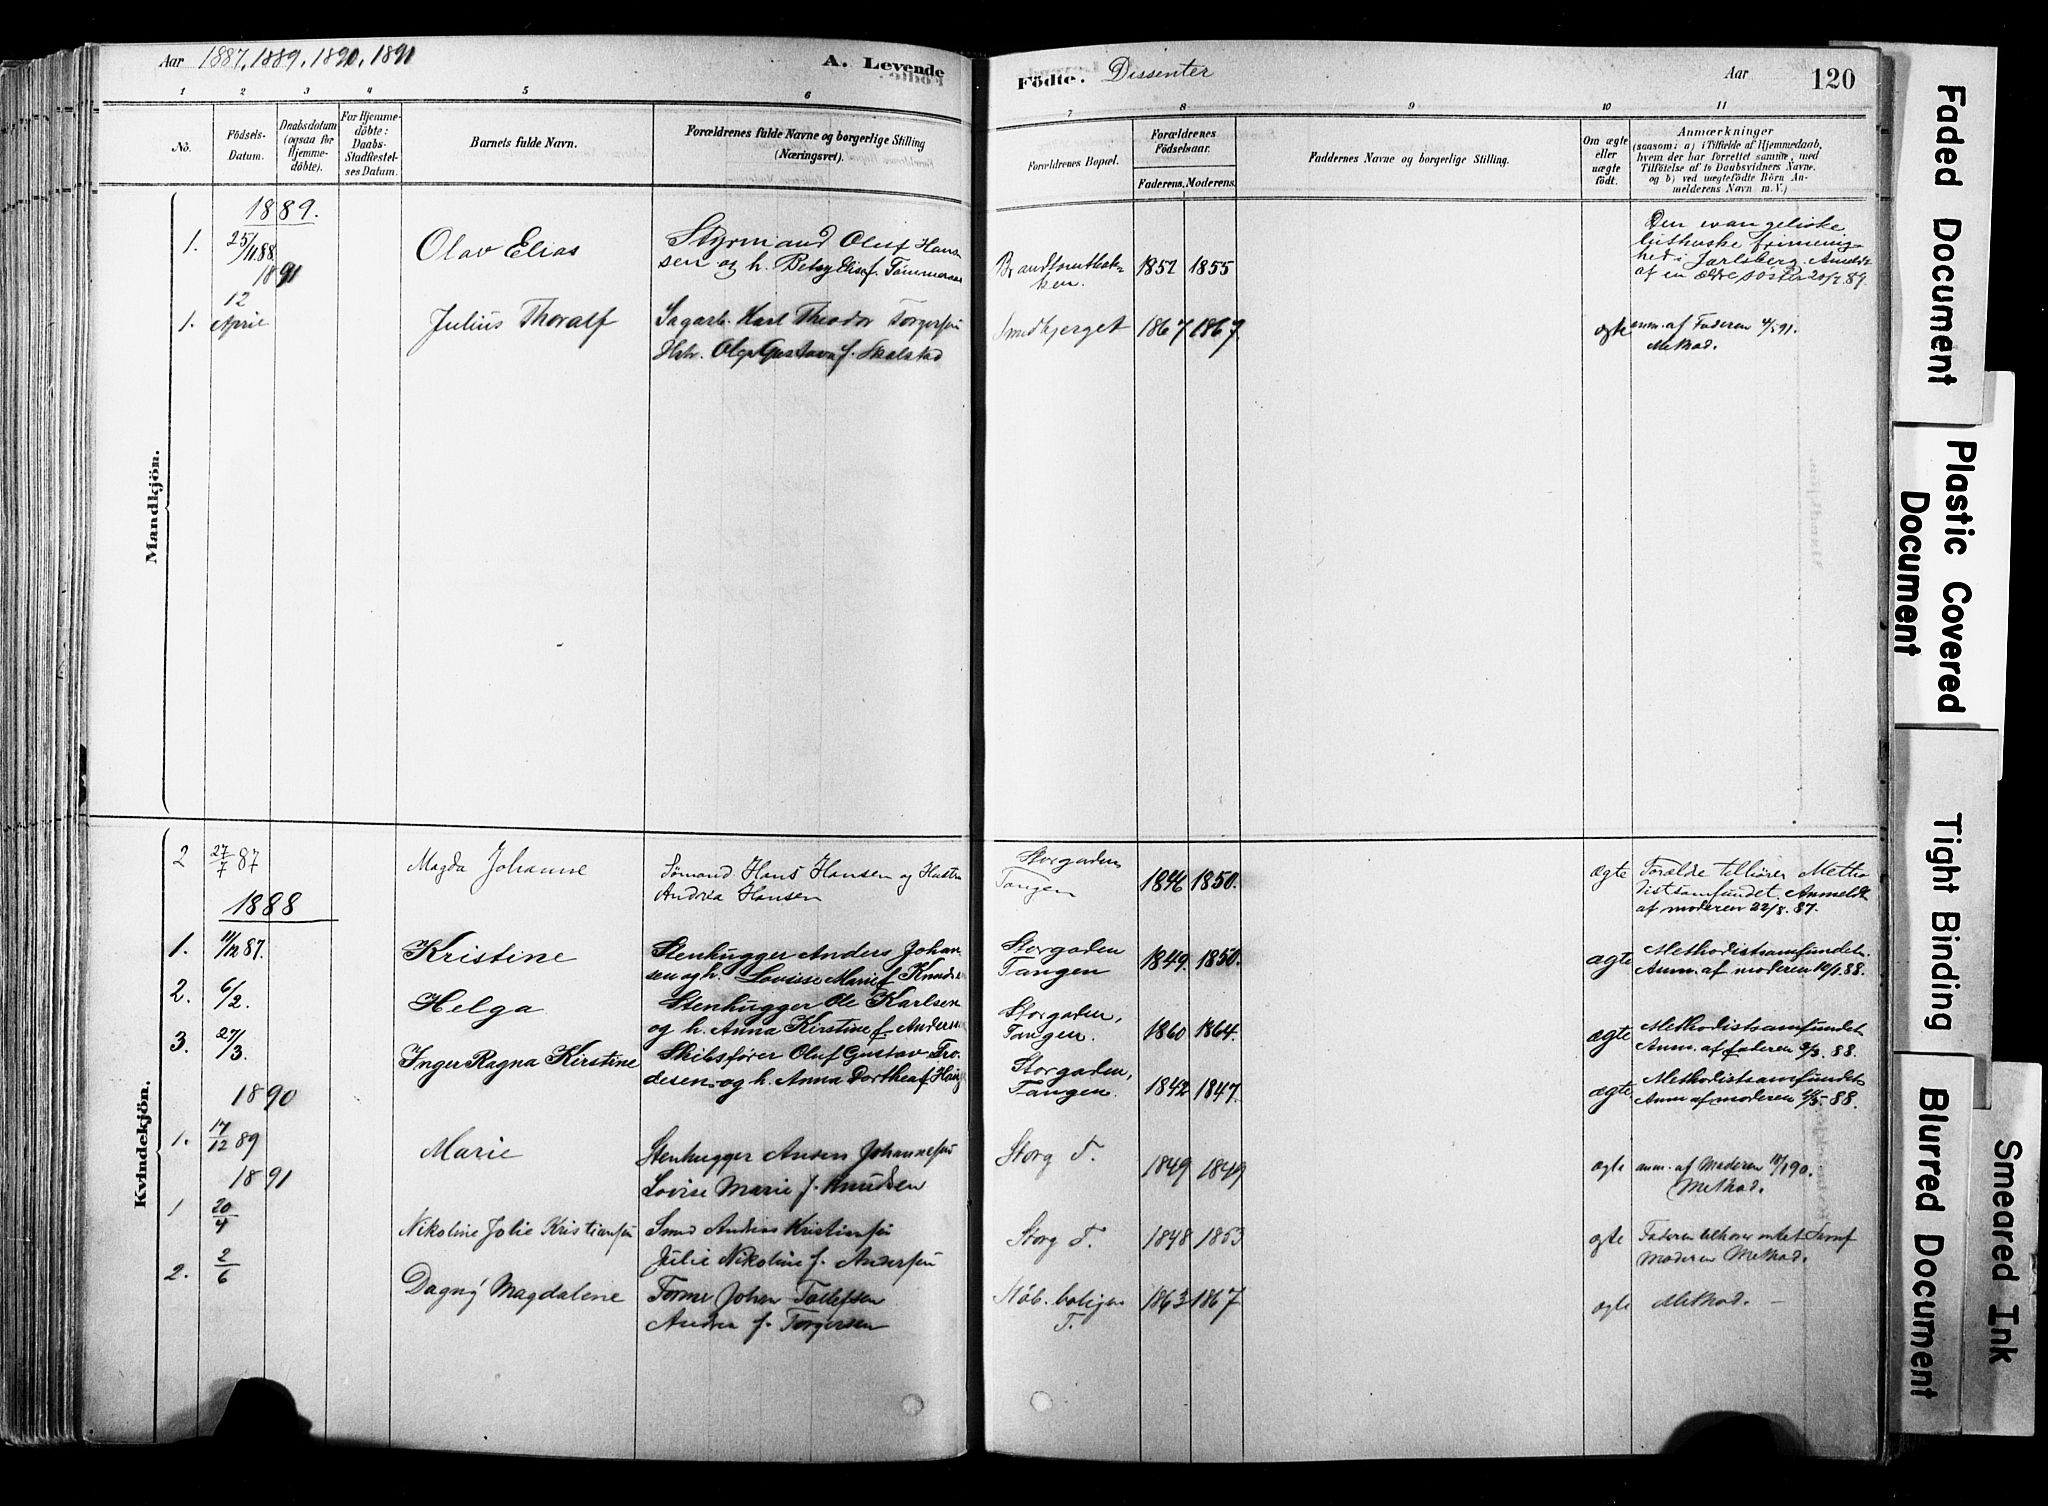 Aar 1887, 1889, 1890, 1891
A. Levende
Födte. Dissenter
Aar
120
1 2 3 4 5 6 7 8 9 10 11
No.
Födsels-
Datum.
Daabsdatum
(ogsaa for
Hjemme-
döbte).
For Hjemme-
döbte:
Daabs-
Stadfæstel-
ses Datum.
Barnets fulde Navn.
Forældrenes fulde Navne og borgerlige Stilling
(Næringsvei).
Forældrenes Bopæl.
Forældrenes
Födselsaar.
Faderens. Moderens.
Faddernes Navne og borgerlige Stilling.
Om ægte
eller
uægte
født.
Anmærkninger
(saasom: a) i Tilfælde af Hjemmedaab,
hvem der har forrettet samme, med
Tilföielse af to Daabsvidners Navne.
og b) ved uægtefödte Börn An-
melderens Navn m. V.)
Mandkjön.
1889.
1. 25/11 88. Olav Elias
Styrmand Oluf Han-
sen og h. Betsy Elise f.
1852 1855
Den evangeliske
lutherske frimenig-
hed i Jarlsberg. Anmeldt
af en ældre søster 20/2 89.
1891
1. 12 April Julius Thoralf
Sagarb. Karl Theodor Torgersen
Hstr. Olga Gustava f. Skalstad
Smedbjerget 1867 1867. ægte
anm. af Faderen 4/5 91.
Method.
Kvindekjön.
2 27/7 87 Magda Johanne
Sømand Hans Hansen og Hustru
Andrea Hansen
Storgaden
Tangen
1846 1850. ægte
Forælde tilhører Metho
distsamfundet. Anmeldt
af moderen 22/8. 87.
1888
1. 4/12 87. Kristine
Stenhugger Anders Johan-
sen og h. Lovise Marie f. Knudsen
Storgaden
Tangen
1849. 1850. ægte
Methodistsamfundet.
Anm. af moderen 10/1 88.
2. 6/2. Helga
Stenhugger Ole Karlsen
og h. Anna Kirstine f. Anders
Storgaden,
Tangen.
1860 1864. ægte
Methodistsamfundet
Anm. af faderen 3/3. 88.
3. 27/3. Inger Ragna Kirstine
Skibsfører Oluf Gustav Fro-
desen og h. Anna Dorthea f.
Storgaden,
Tangen.
1842 1847. ægte
Methodistsamfundet
Anm af moderen 88.
1890
1. 17/12 89 Marie
Stenhugger Anders Johannesen
Lovise Marie f. Knudsen
Storg T. 1849 1849 ægte
anm. af Moderen 90.
Method.
1891
1 20/4 Nikoline Jolie Kristiansen
Smed Anders Kristiansen
Julie Nikoline f. Andersen
Storg T. 1848 1853 ægte
Faderen tilhører intet Samf
moderen Method.
2. 2/6 Dagny Magdalene
Former Johan Tollefsen
Andrea f. Torgersen
Støb. boligen
T.
1863 1867 ægte Method. —
Faded Document
Plastic Covered
Document
Tight Binding
Blurred Document
Smeared Ink